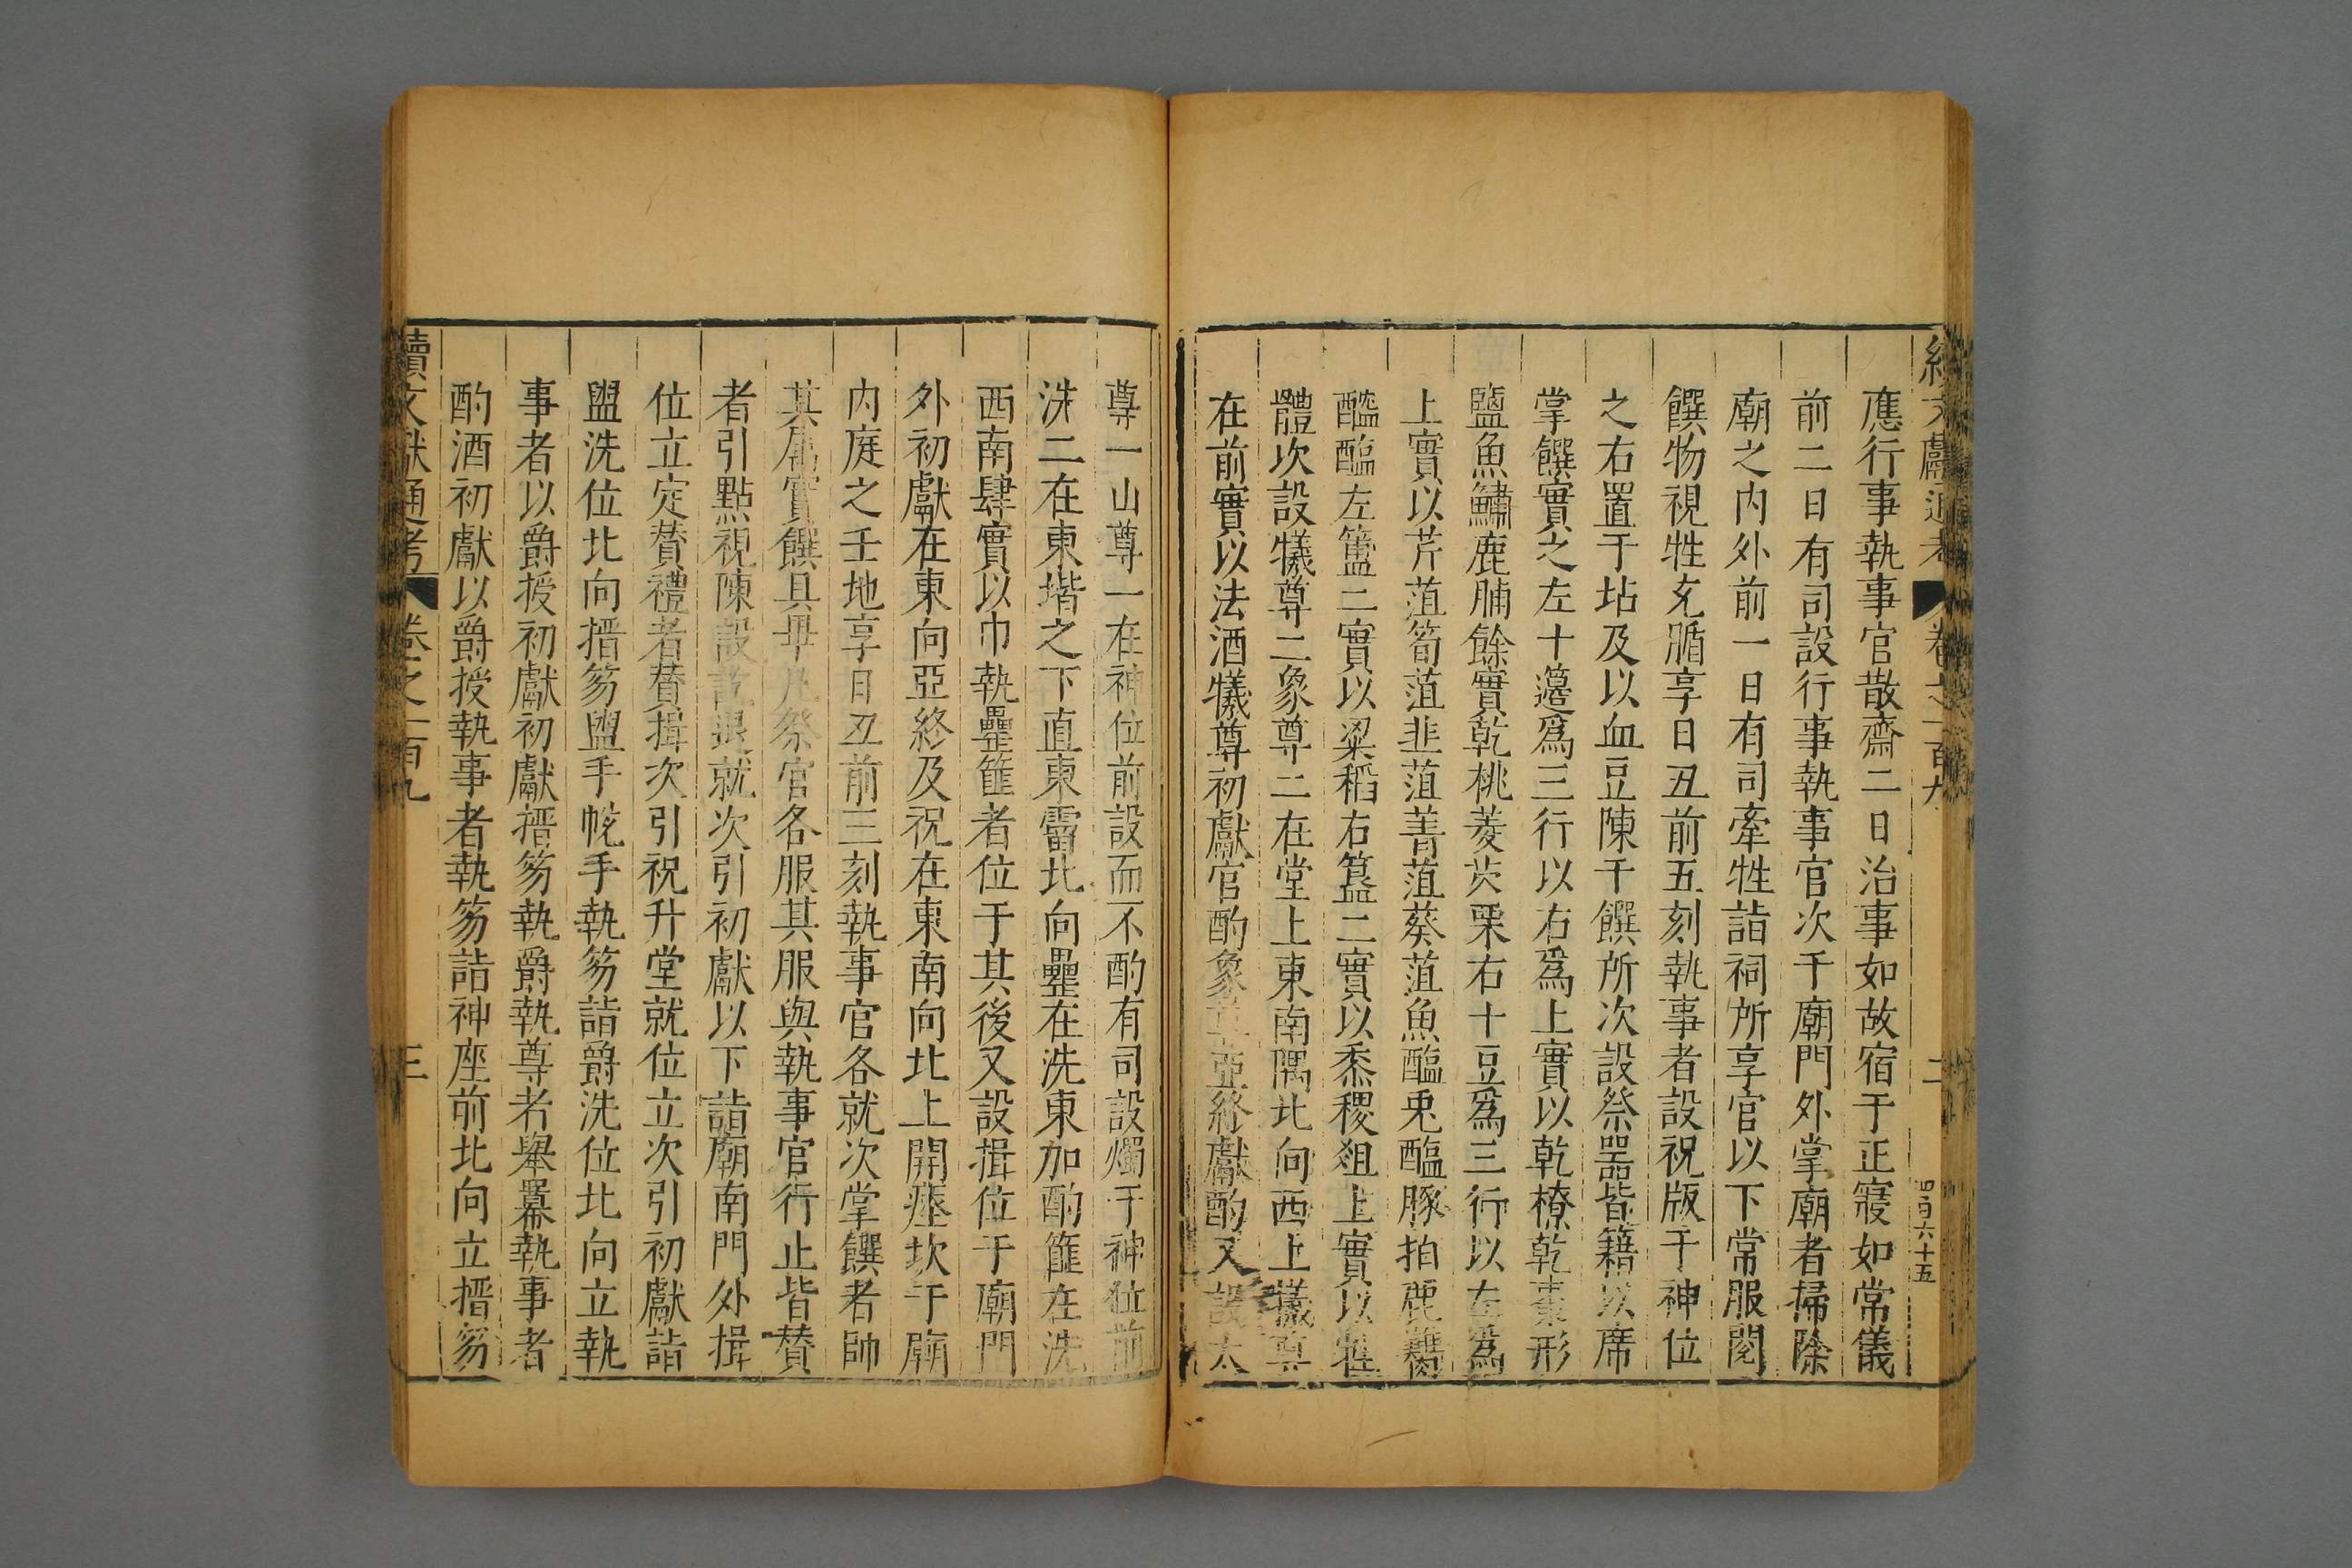 續文獻通考 卷之一百九 二 四百六十五
應行事執事官散齋二日治事如故宿于正寢如常儀
前二日有司設行事執事官次于廟門外掌廟者掃除
廟之内外前一日有司牽牲詣祠所享官以下常服閱
饌物視牲充腯享日丑前五刻執事者設祝版于神位
之右置于坫及以血豆陳于饌所次設祭器皆籍以席
掌饌實之左十籩爲三行以右爲上實以乾䕩乾棗形
鹽魚鱐鹿脯餘實乾桃菱芡栗右十豆爲三行以左爲
上實以芹菹筍菹韭菹菁菹葵菹魚醢兎醢豚拍鹿臡
醓醢左簠二實以粱稻右簋二實以黍稷俎上實以牲
體次設犧尊二象尊二在堂上東南隅北向西上犧尊
在前實以法酒犧尊初獻官酌象尊亞終獻酌又設太
尊一山尊一在神位前設而不酌有司設燭于神位前
洗二在東堦之下直東霤北向罍在洗東加酌篚在洗
西南肆實以巾執罍篚者位于其後又設揖位于廟門
外初獻在東向亞終及祝在東南向北上開瘞坎于廟
内庭之壬地享日丑前三刻執事官各就次掌饌者帥
其屬實饌具畢凡祭官各服其服與執事官行止皆贊
者引點視陳設訖退就次引初獻以下詣廟南門外揖
位立定贊禮者贊揖次引祝升堂就位立次引初獻詣
盥洗位北向搢笏盥手帨手執笏詣爵洗位北向立執
事者以爵授初獻初獻搢笏執爵執尊者舉冪執事者
酌酒初獻以爵授執事者執笏詣神座前北向立搢笏
續文獻通考 卷之一百九 三